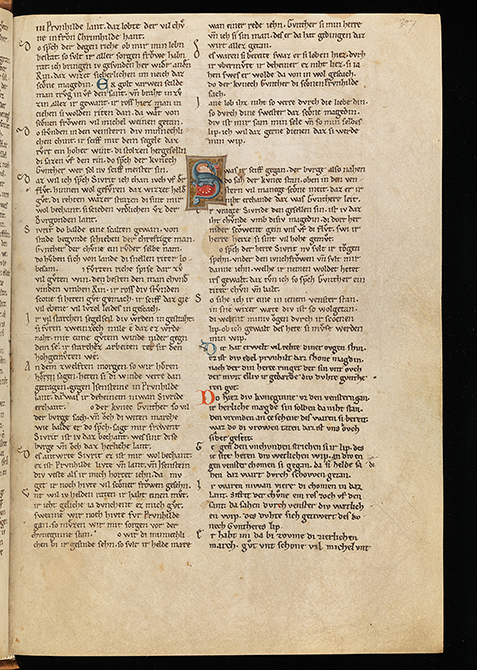 in Prvnhilde lant. daz lobte der vil chv
ne in frön Chrimhilde hant.
Do sp̄ch der degen riche ob mir min lebn
bestat. so sult ir aller sorgen fröwe habn
rat. ich bringe iv gesvnden her wider an den
Rin. daz wizet sicherlichen im neich daz
scöne magedin.
trvg in vf den sant.
zin aller ir gewant. ir ross hiez man in
ziehen si wolden riten dan. da wart von
scönen fröwen vil michel weinen getan.
Do stvnden in den venstern div minneklichen
chint. ir sciff mit dem segele daz
rvrt ein hoher wint. di stolzen hergesellen
di sazen vf den rin. do sp̄ch der kvnech
Gvnther wer sol nv sciff meister sin.
Daz wil ich sp̄ch Sivrit ich chan ivch vf der
flvt. hinnen wol gefvren daz wizzet helde
gvt. di rehten wazer strazen di sint mir
wol bechant. si scieden vrölichen vz der
Bvrgonden lant.
Sivrit do balde eine scalten gewan. von
stade begvnde schieben der chreftige man.
Gvnther der chvne ein rvder selbe nam.
do hvben sich von lande di snellen ritter lobesam.
Si fvrten riche spise dar zv
vil gvten win. den besten den man chvnde
vinden vmben Rin. ir ross div stvnden
scone si heten gvt gemach. ir sciff daz gie
vil ebene vil lvzel leides in gesach.
Ir vil starchen segelseil
si fvren zweinzech mile e daz ez wrde
naht. mit eime gvten winde nider gegn
dem se. ir starchez arbeiten tet sit den
hohgemvten we.
An dem zwelften morgen so wir hören
sagen. heten si di winde verre dan
getragen. gegen Isensteine in Prvnhilde
lant. daz was ir deheinem niwan Sivride
erchant.
Do der kvnec Gvnther so vil
der bvrge sach. vn̄ öch di witen marche
wie balde er do sp̄ch. sagt mir frivent
Sivrit ist iv daz bechant. wes sint dise
bvrge vn̄ öch daz herliche lant.
Des antwrte Sivrit ez ist mir wol bechant.
ez ist Prvnhilde livte vn̄ lant. vn̄ Isenstein
div veste als ir mich hortet iehn. da mvget
ir noch hivte vil scöner fröwen gesehn.
Vnt wil iv helden raten ir habt einen mvt.
ir ieht geliche ia dvnchet ez mich gvt.
swenne wir noch hivte fvr Prvnhilde
gan. so mvzen wir mit sorgen vor der
chvneginne stan.
So wir di minneklichen
bi ir gesinde sehn. so svlt ir helde mære
wan einer rede iehn. Gvnther si min herre
vn̄ ich si sin man. des er da hat gedingen daz
wirt allez getan.
Des waren si bereite swaz er si loben hiez. dvrh
ir vbermvte ir deheiner ez niht liez. si iahen
swes er wolde da von in wol gesach.
do der kvnech Gvnther di scönen Prvnhilde
sach.
Iane lob ihz niht so verre dvrch die liebe din.
so dvrch dine swester daz scöne magedin.
div ist mir sam min sele vn̄ so min selbes
lip. ich wil daz gerne dienen daz si werde
min wip.
was ir sciff gegan. der bvrge also nahen
do sah der kvnec stan. oben in den venstern
vil manege scöne meit. daz er ir
niht erchande daz was Gvnther leit.
Er vragte Sivride den gesellen sin. ist iv daz
iht chvnde vmb disiv magedin. di dort her
nider scöwent gein vns vf di flvt. swi ir
herre heize si sint vil hohe gemvt.
Do sp̄ch der herre Sivrit nv svlt ir tögen
spehn. vnder den ivnchfröwen vn̄ svlt mir
danne iehn. welhe ir nemen woldet hetet
irs gewalt. daz tvn ich so sp̄ch Gvnther ein
ritter chvn vn̄ balt.
So sihe ich ir eine in ienem venster stan.
in sne wizer wæte div ist so wolgetan.
di welent miniv ögen dvrch ir scönen
lip. ob ich gewalt des hete si mvse werden
min wip.
Dir hat erwelt vil rehte diner ögen shin.
ez ist div edel Prvnhilt daz schone magdin.
nach der din herze ringet der sin vnt öch
der mvt. elliv ir gebærde div dvhte Gvntheren
gvt.
Do hiez div kvneginne vz den venstern gan.
ir herliche mægde sin solden da niht stan.
den vremden an ze sehene des waren si bereit.
waz do di vrowen taten daz ist vns öch
sider geseit.
Gegen den vnchvnden strichen si ir lip. des
ie site heten div wætlichen wip. an div engen
venster chomen si gegan. da si di helde sahen
daz wart dvrch schowen getan.
Ir waren niwan viere di chomen in daz
lant. Sifrit der chöne ein ros zoch vf den
sant. da sahen dvrch div venster div wætlichen
wip. des dvhte sich getivret des kvnech
Gvntheres lip.
Er habt im da bi zovme di zierlichen
march. gvt vnt schone vil michel vnt